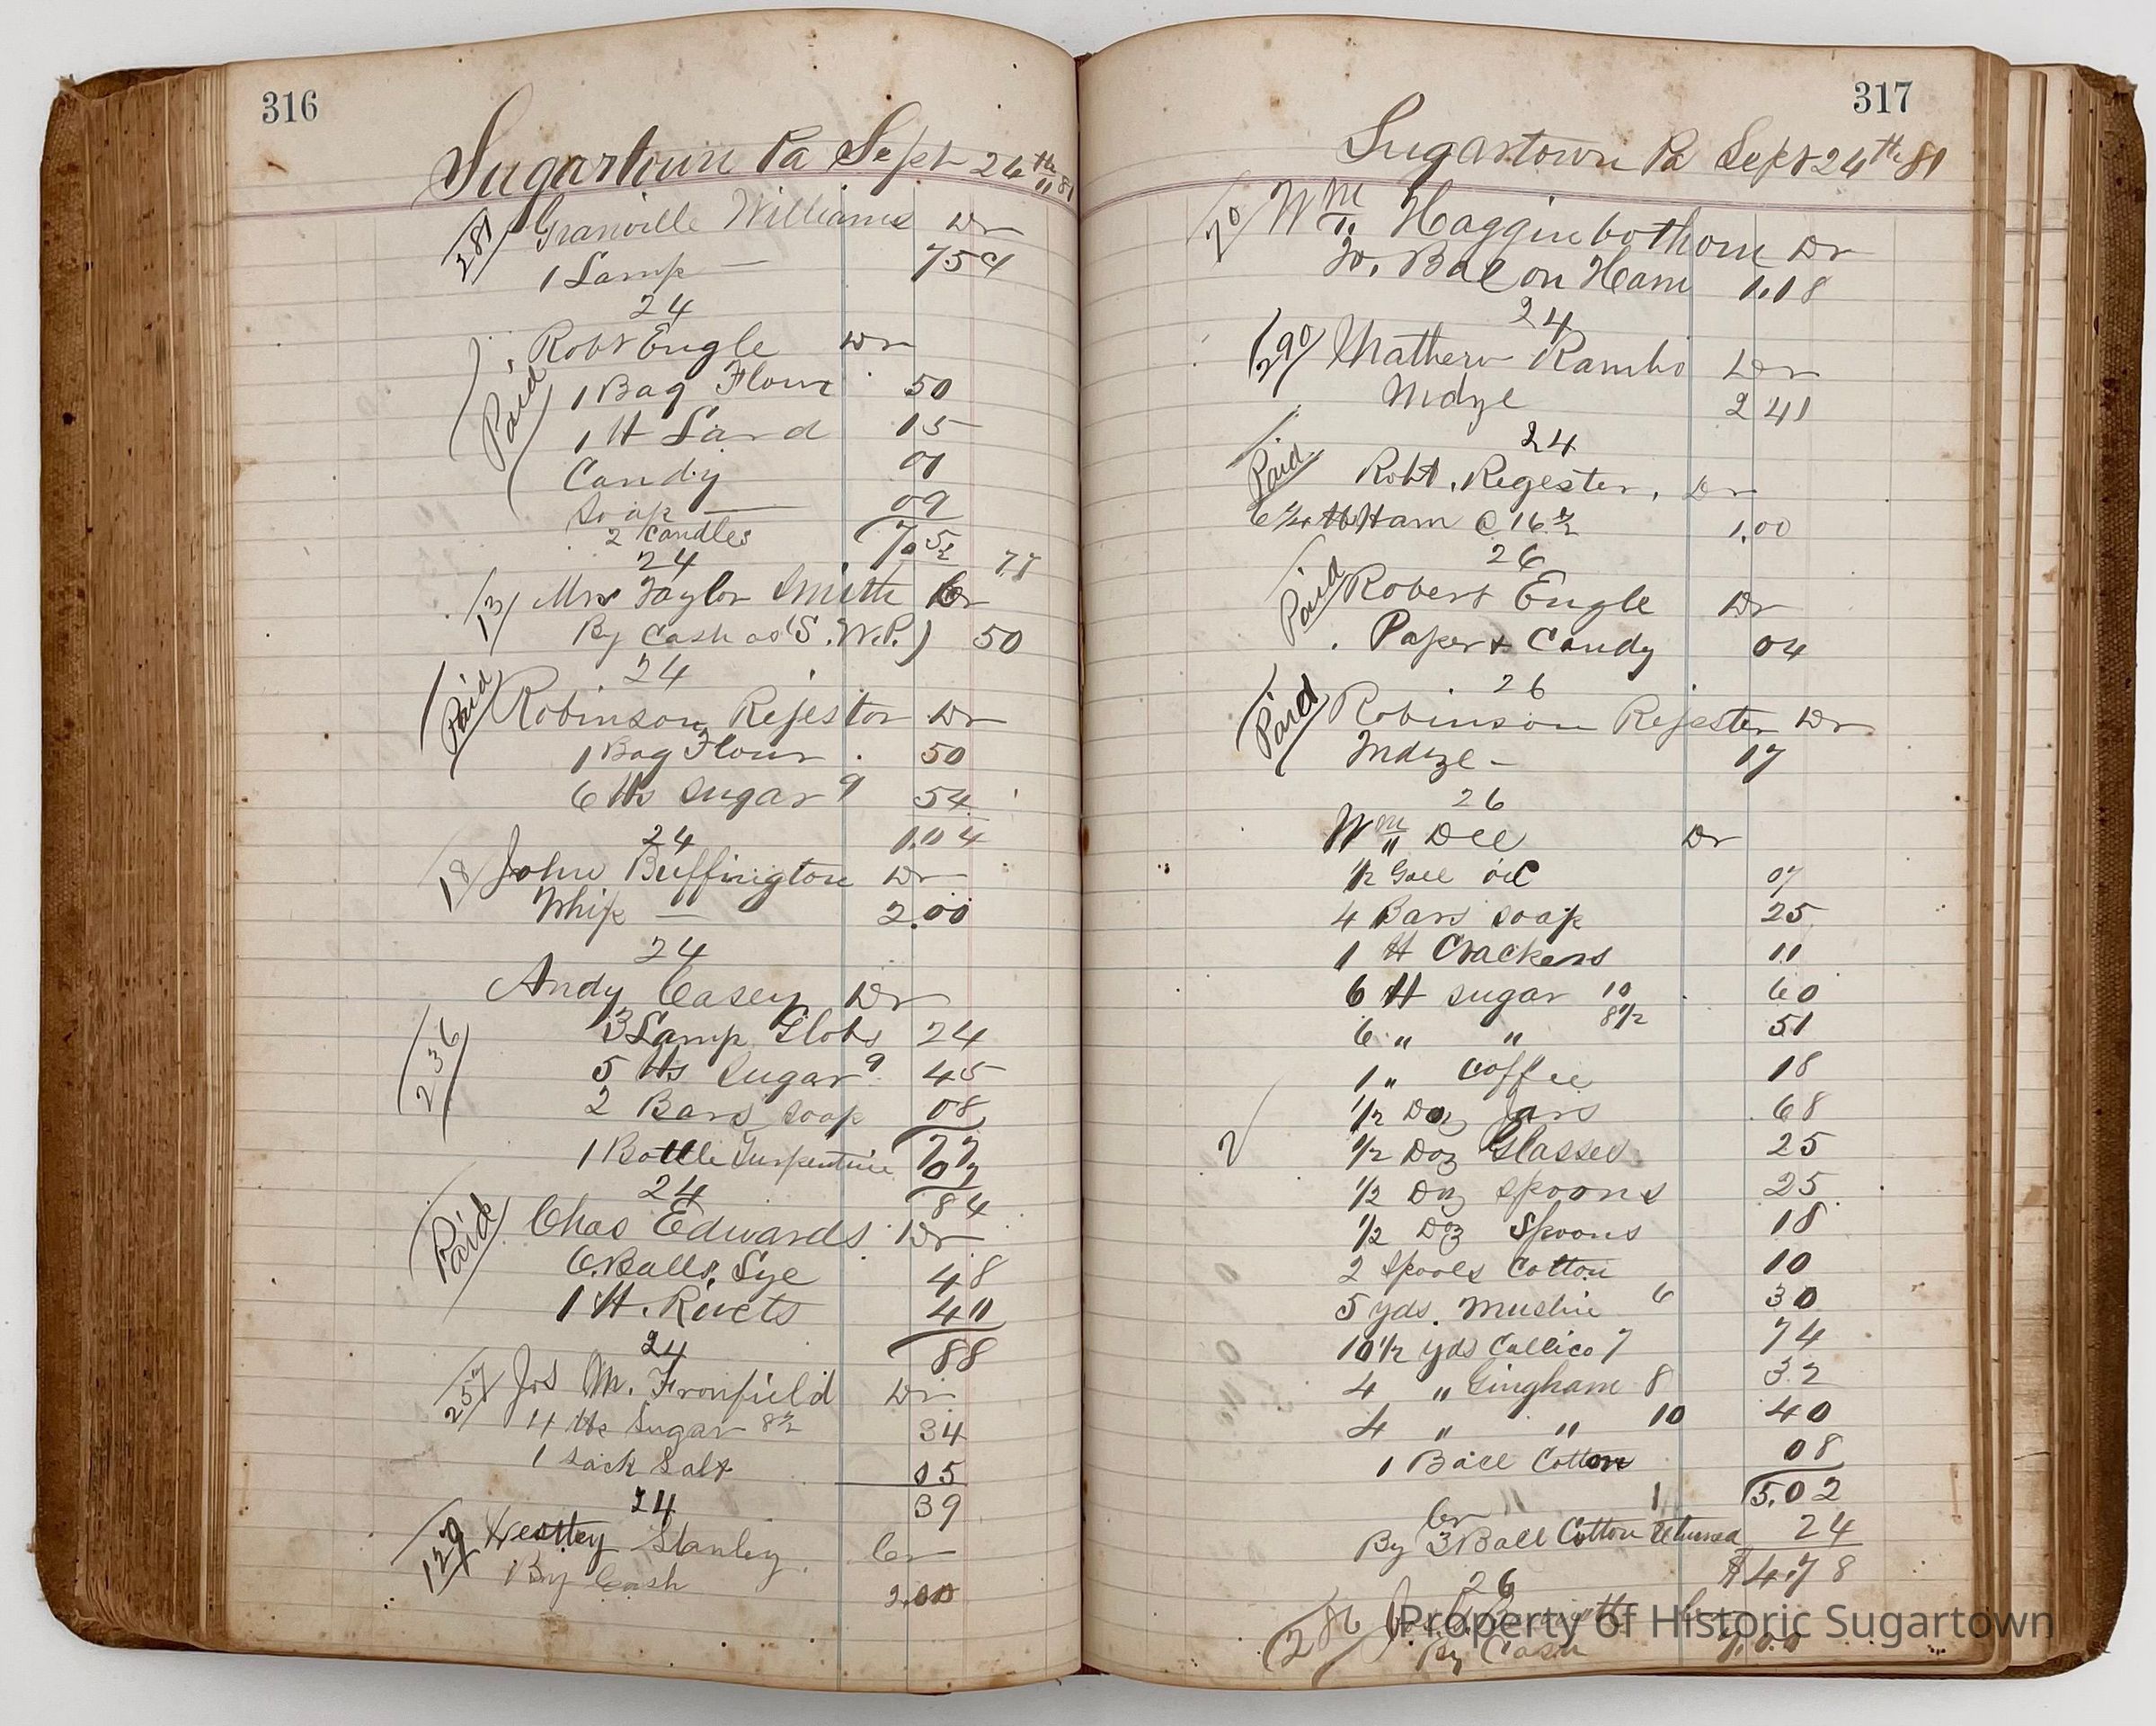 316
Sugartown Pa Sept 24th "81
281 Granville Williams Dr
1 Lamp — 75c
24
Paid Robt Engle Dr
1 Bag Flour 50
1 ℔ Lard 15
Candy 01
Soap — 09
2 Candles 75
24 77
131 Mrs Taylor Smith Cr
By Cash as (S. W. P.) 50
24
Paid Robinson Rejestor Dr
1 Bag Flour 50
6 ℔s Sugar 9 54
24 1.04
18 John Buffington Dr
Whip — 2.00
24
Andy Casey Dr
3 Lamp Globs 24
236 5 ℔s Sugar 9 45
2 Bars soap 08
77
1 Bottle Turpentine 07
24 84
Paid Chas Edwards Dr
6 Balls Lye 48
1 ℔. Rivets 40
24 88
257 Jos M. Fronfield Dr
4 ℔s Sugar 8½ 34
1 sack Salt 05
24 39
Stanley Cr
By Cash 2.00
317
Sugartown Pa Sept 24th 81
70 Wm Hagginbothom Dr
To. Bal on Ham 1.18
24
290 Mathew Rambo Dr
Mdze 2 41
24
Paid Robt. Regester. Dr
6 ¼ ℔ Ham @ 16½ 1.00
26
Paid Robert Engle Dr
Paper & Candy 04
26
Paid Robinson Rejester Dr
Mdze — 17
26
Wm " Dee Dr
½ Gall oil 07
4 Bars soap 25
1 ℔ Crackers 11
6 ℔ sugar 10 60
6 " " 8½ 51
1 " Coffee 18
½ Doz Jars 68
2 ½ Doz Glasses 25
½ Doz spoons 25
½ Doz Spoons 18
2 Spools Cotton 10
5 yds. Muslin 6 30
10½ yds Callico 7 74
4 " Gingham 8 32
4 " " 10 40
1 Ball Cotton 08
5.02
Cr
By 3 Ball Cotton Returned 24
$4.78
26
286
By Cash
Property of Historic Sugartown